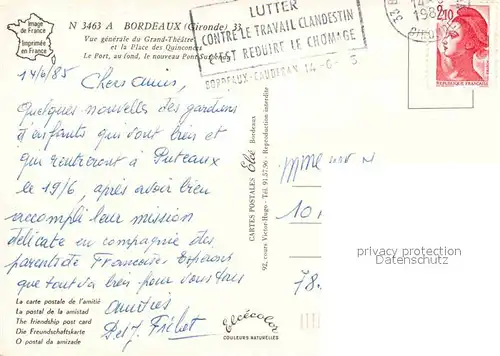 N 3463 A BORDEAUX (Gironde) 33
Vue générale du Grand-Théâtre
et la Place des Quinconces
Le Port, au fond, le nouveau Pont Suspendu
Image
de France
Imprimée
en France
LUTTER
CONTRE LE TRAVAIL CLANDESTIN
C'EST REDUIRE LE CHOMAGE
BORDEAUX-CAUDERAN 14-6-
2,10
14/6/85 Chers amis,
Quelques nouvelles des gardiens
d'enfants qui vont bien et
qui rentreront à Puteaux
le 19/6 après avoir bien
accompli leur mission
délicate en compagnie des
parents de Françoise. Espérons
que tout va bien pour vous tous
Amitiés
Mme
10
78
CARTES POSTALES Elcé Bordeaux
92, cours Victor-Hugo - Tél. 91.37.96 - Reproduction interdite
privacy protection
Datenschutz
La carte postale de l'amitié
La postal de la amistad
The friendship post card
Die Freundschaftskarte
O postal da amizade
Elcécolor
COULEURS NATURELLES